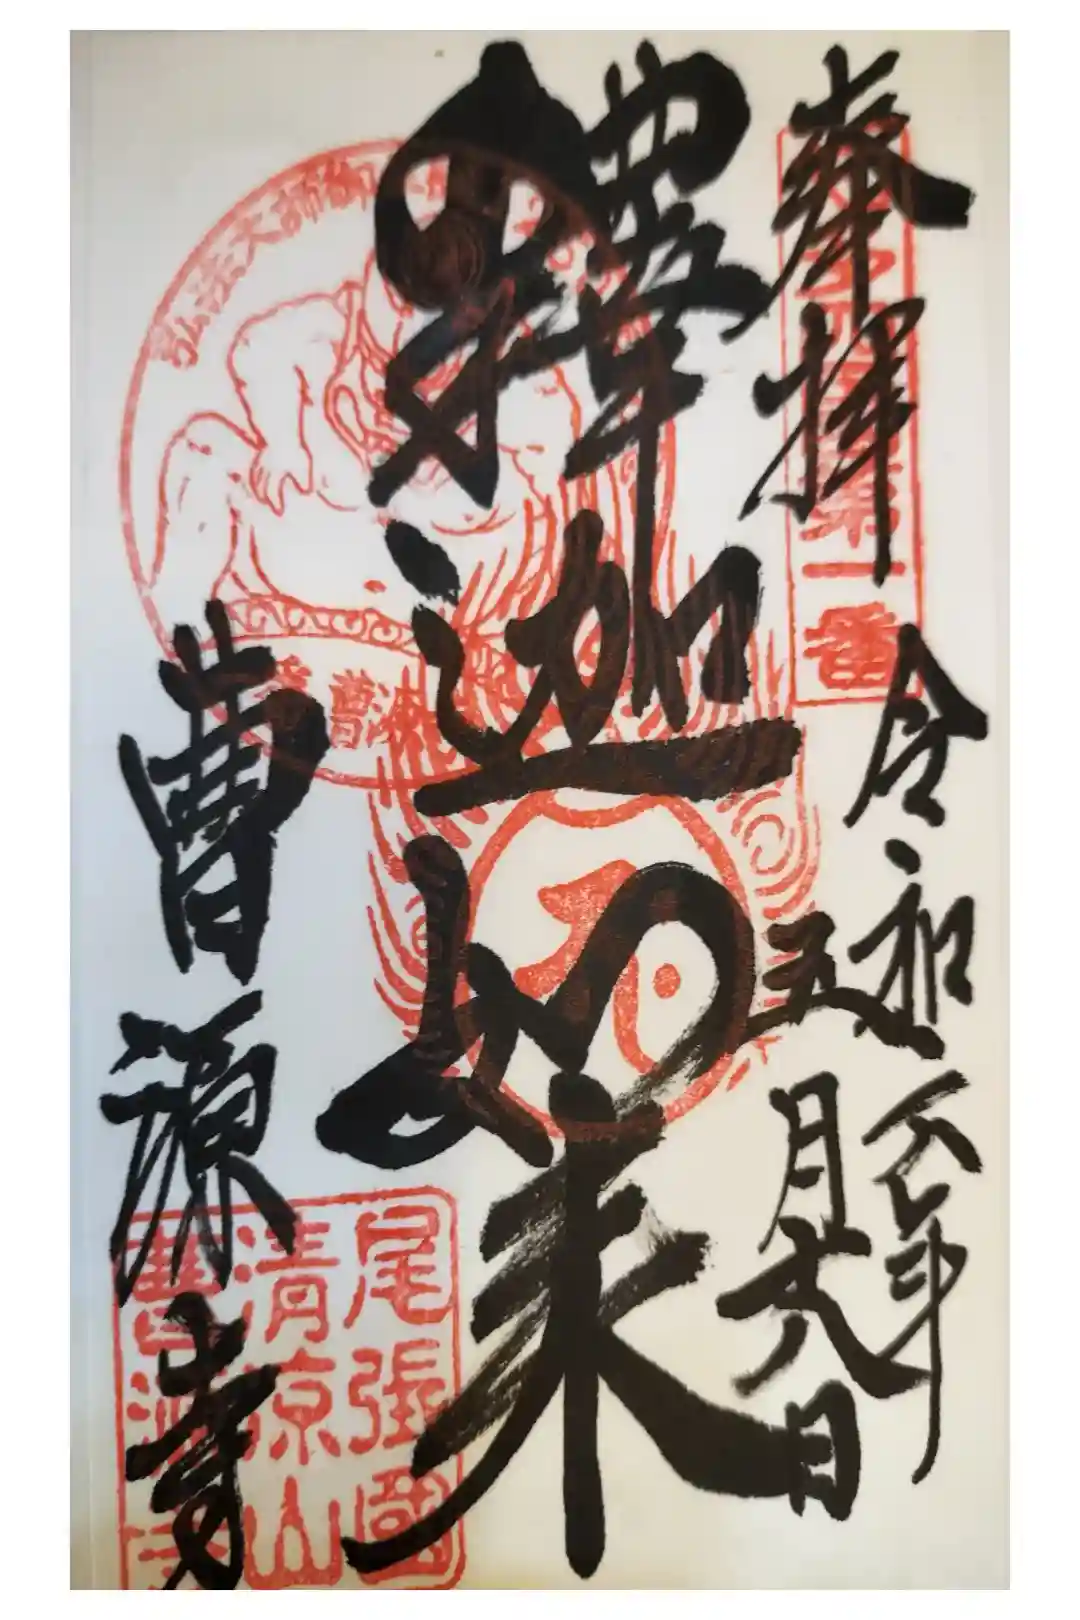 奉拝
第一番
令和六年
五月六日
釋迦如来
弘法大師御
曹源寺
尾張國
清涼山
曹源寺